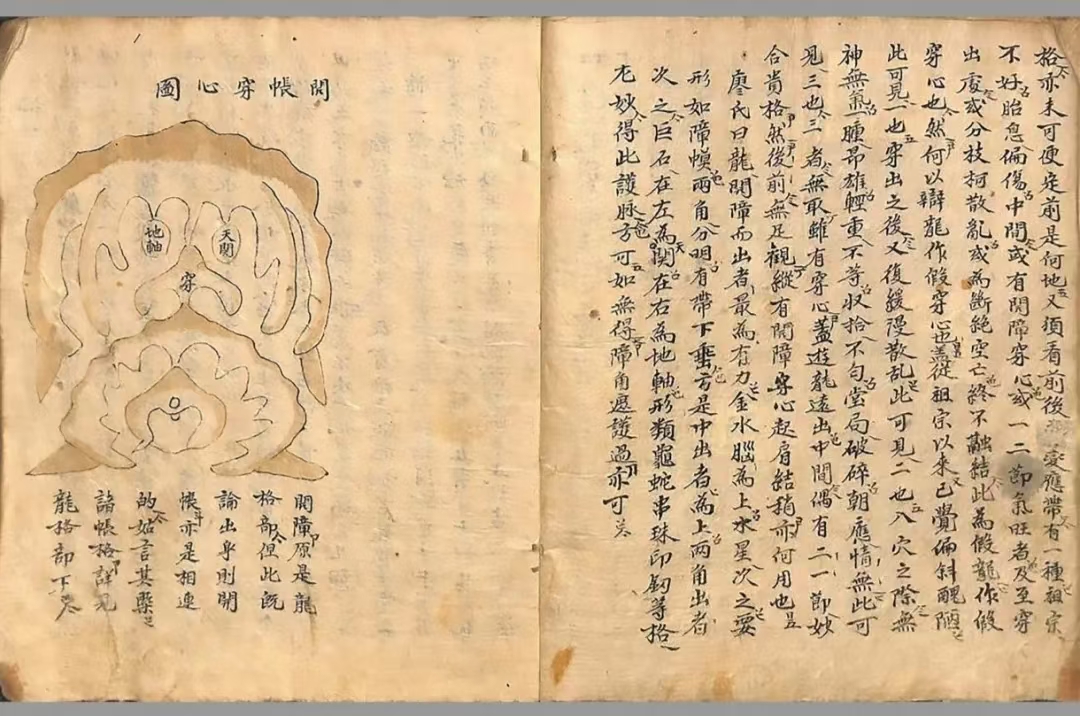 格亦未可便定前是何地又須看前後愛應帶有一種祖宗
不好胎息偏傷中間或有開障穿心或一二節氣旺者及至穿
出處或分枝柯散亂或為斷絕空亡終不融結此為假龍作假
穿心也然何以辯龍作假穿心也蓋從祖宗以來已覺偏斜醜陋
此可見一也穿出之後又復緩漫散乱此可見二也入穴之際無
神無氣臃昂雄輕重不等収拾不勻堂局破碎朝應情無此可
見三也三者無取雖有穿心蓋遊龍遠出中間偶有二一節妙
合貴格然後前無足觀縱有開障穿心起肩結稍亦何用也
廖氏曰龍開障而出者最為有力金水腦為上水星次之要
形如障幙兩角分明有帶下垂方是中出者為上兩角出者
次之巨石在左為天関在右為地軸形類龜蛇串珠印釼等格
尤妙得此護脉方可如無得障角遮護過亦可
開帳穿心圖
天関
地軸
穿
開障原是龍
格部但此既
論出身則開
帳亦是相連
的姑言其槩
諸帳格詳見
龍格部下